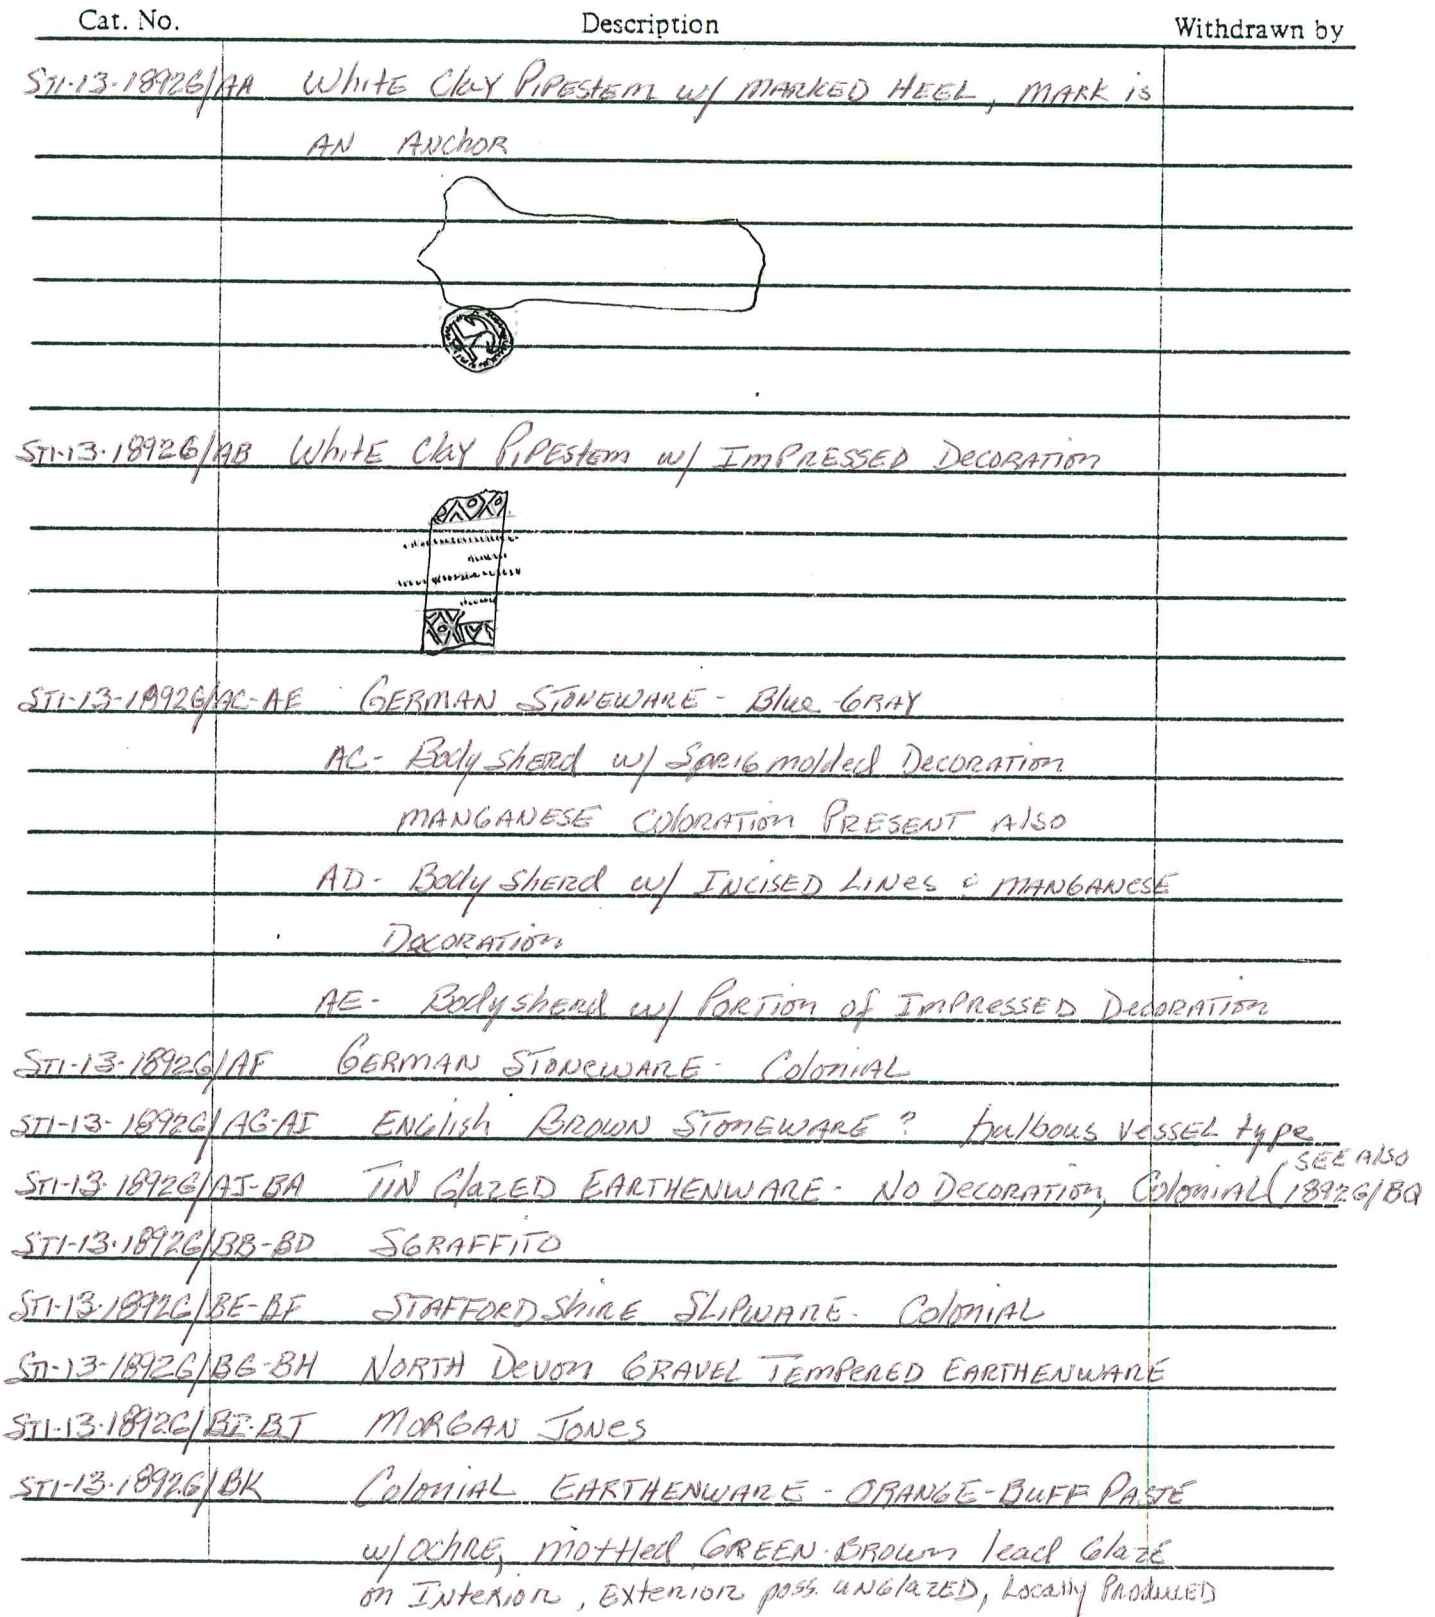 Cat. No. Description Withdrawn by
ST1-13-1892G/AA White Clay Pipestem w/ MARKED HEEL, MARK is
AN Anchor
ST1-13-1892G/AB White Clay Pipestem w/ IMPRESSED DECORATION
ST1-13-1892G/AC-AE GERMAN STONEWARE - Blue-GRAY
AC- Body sherd w/ Sprig molded DECORATION
MANGANESE COLORATION PRESENT Also
AD- Body sherd w/ INCISED LINES & MANGANESE
DECORATION
AE- Body sherd w/ PORTION of IMPRESSED DECORATION
ST1-13-1892G/AF GERMAN STONEWARE - Colonial
ST1-13-1892G/AG-AI ENGlish BROWN STONEWARE ? bulbous vessel type
ST1-13-1892G/AJ-BA TIN GlazED EARTHENWARE - NO DECORATION, Colonial (SEE Also
1892G/BQ
ST1-13-1892G/BB-BD SGRAFFITO
ST1-13-1892G/BE-BF STAFFORDShire SLIPWARE - Colonial
ST1-13-1892G/BG-BH NORTH Devon GRAVEL TEMPERED EARTHENWARE
ST1-13-1892G/BI-BJ MORGAN JONES
ST1-13-1892G/BK Colonial EARTHENWARE - ORANGE-BUFF PASTE
w/ Ochre, mottled GREEN-BROWN lead Glaze
on Interior, Exterior poss. UNGlazED, Locally Produced